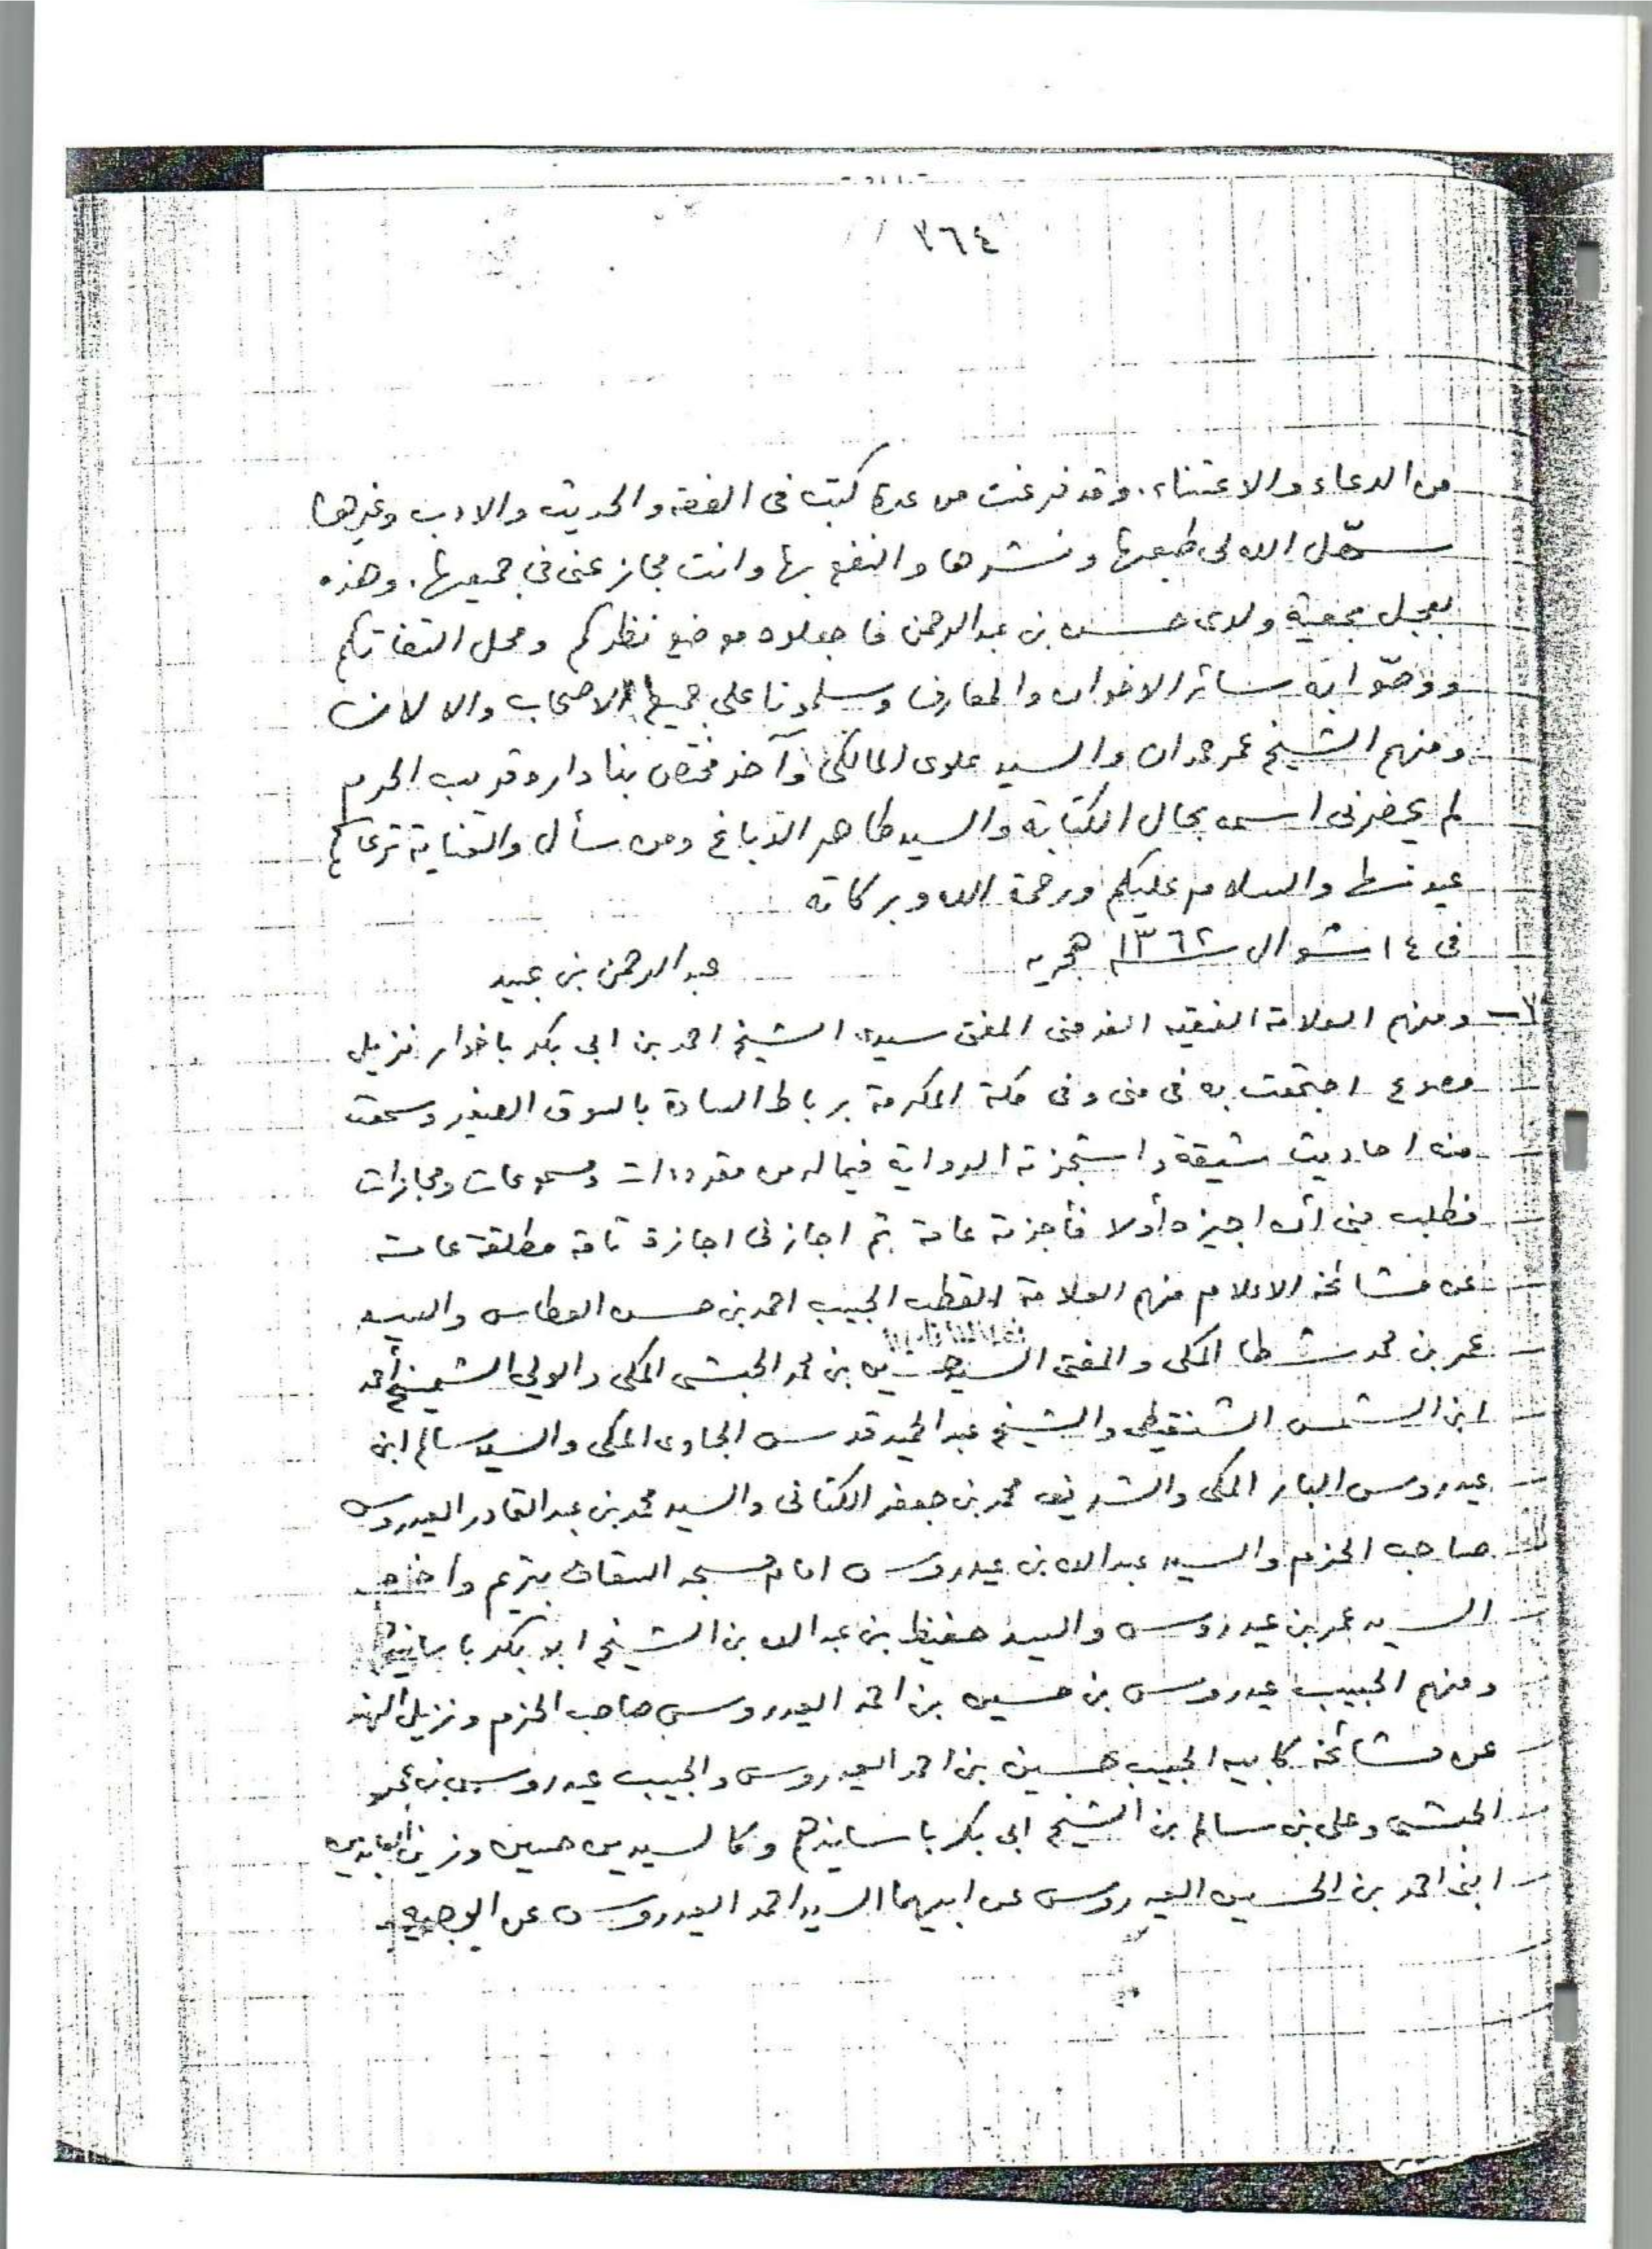 ٣٦٤
من الدعاء والاعتناء. وقد فرغت من عدة كتب فى الفقه والحديث والادب وغيرها
سهّل الله لى طبعها ونشرها والنفع بها وانت مجاز عنى في جميعها. وهذه
بعجل بمعية ولدى حسن بن عبدالرحمن فاجعلوه موضع نظركم ومحل التفاتكم
ووصّوا به سائر الاخوان والمعارف وسلمونا على جميع الاصحاب والالان
ومنهم الشيخ عمر حمدان والسيد علوى المالكى وآخذ مختص بنا داره قريب الحرم
لم يحضرنى اسمه بحال الكتابة والسيد طاهر الدباغ ومن سأل والعناية ترعاكم
والسلام عليكم ورحمة الله وبركاته
فى ١٤ شوال سنة ١٣٦٢ هجريه
عبدالرحمن بن عبيد
ومنهم العلامة الفقيه الفرضى المفتى سيدى الشيخ احمد بن ابى بكر باخدار نزيل
اجتمعت به فى منى وفى مكة المكرمة برباط السادة بالسوق الصغير وسمعت
منه احاديث شيقة واستجزته الرواية فيما له من مقروءات ومسموعات ومجازات
فطلب منى أن اجيزه أولا فأجزته عامة ثم اجازنى اجازة تامة مطلقة عامة
عن مشائخه الاعلام منهم العلامة القطب الحبيب احمد بن حسن العطاس والسيد
عمر بن محمد شطا المكى والمفتى السيد حسين بن محمد الحبشى المكى والولي الشيخ أحمد
ابن الشمس الشنقيطى والشيخ عبدالحميد قدس الجاوى المكى والسيد سالم ابن
عيدروس البار المكى والشريف محمد بن جعفر الكتانى والسيد محمد بن عبدالقادر العيدروس
صاحب الحزم والسيد عبدالله بن عيدروس امام مسجد السقاف بتريم واخوه
السيد عمر بن عيدروس والسيد حفيظ بن عبدالله بن الشيخ ابو بكر باسانيدهم
ومنهم الحبيب عيدروس بن حسين بن احمد العيدروس صاحب الحزم ونزيل الهند
عن مشائخه كابيه الحبيب حسين بن احمد العيدروس والحبيب عيدروس بن عمر
الحبشى وعلى بن سالم بن الشيخ ابى بكر باسانيدهم وكالسيدين حسين وزين العابدين
ابنى احمد بن الحسين العيدروس عن ابيهما السيد احمد العيدروس عن الوجيه